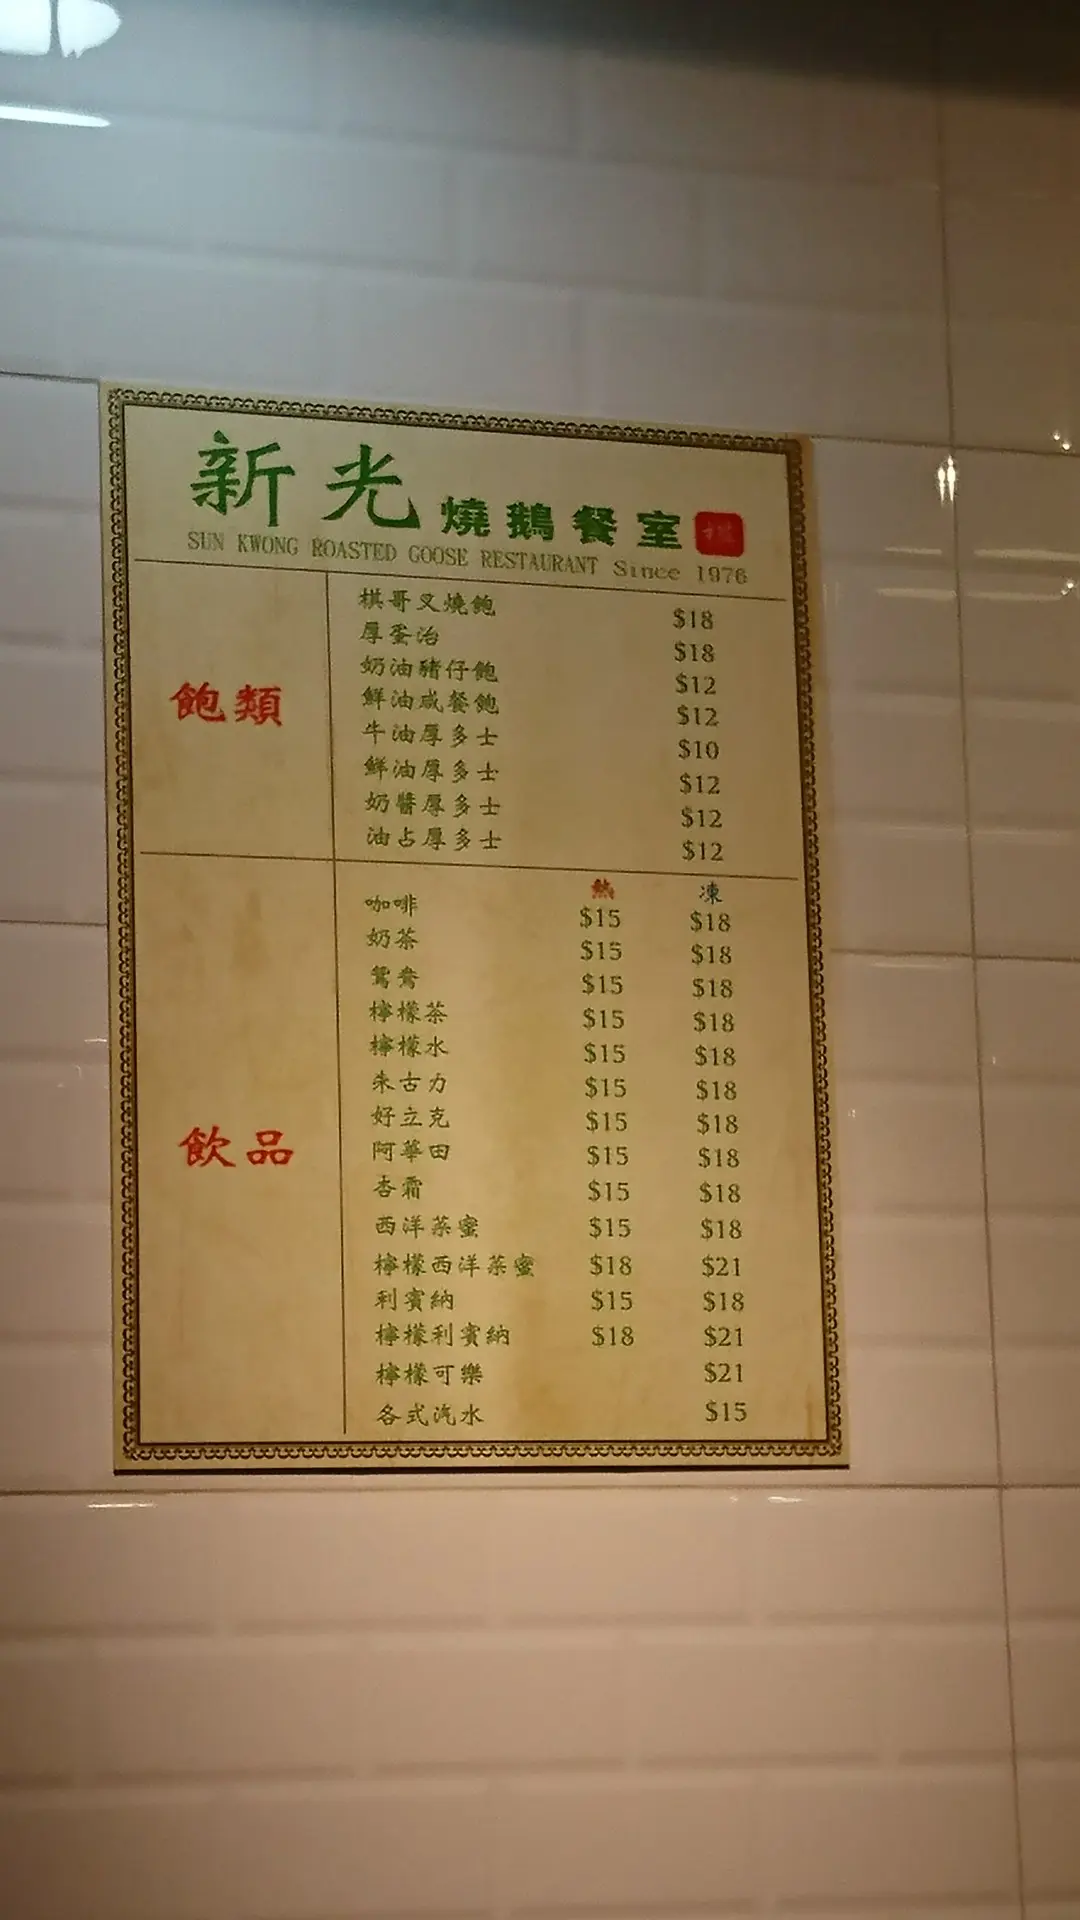 新光燒鵝餐室
SUN KWONG ROASTED GOOSE RESTAURANT Since 1976
飽類
棋哥叉燒飽 $18
厚蛋治 $18
奶油豬仔飽 $12
鮮油咸餐飽 $12
牛油厚多士 $10
鮮油厚多士 $12
奶醬厚多士 $12
油占厚多士 $12
飲品
熱 凍
咖啡 $15 $18
奶茶 $15 $18
鴛鴦 $15 $18
檸檬茶 $15 $18
檸檬水 $15 $18
朱古力 $15 $18
好立克 $15 $18
阿華田 $15 $18
杏霜 $15 $18
西洋菜蜜 $15 $18
檸檬西洋菜蜜 $18 $21
利賓納 $15 $18
檸檬利賓納 $18 $21
檸檬可樂 $21
各式汽水 $15